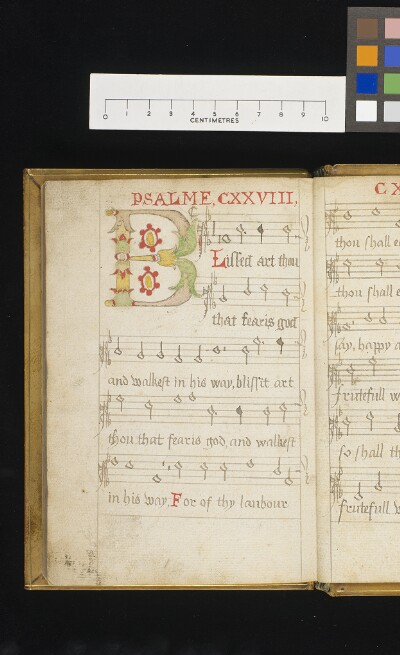 0 1 2 3 4 5 6 7 8 9 10
CENTIMETRES
PSALME, CXXVIII,
BLissed art thou
that fearis god
and walkest in his way, blissit art
thou that fearis god, and walkest
in his way, For of thy laubour
CX
thou shall
thou shall
say, happy
frutefull
so shall
frutefull